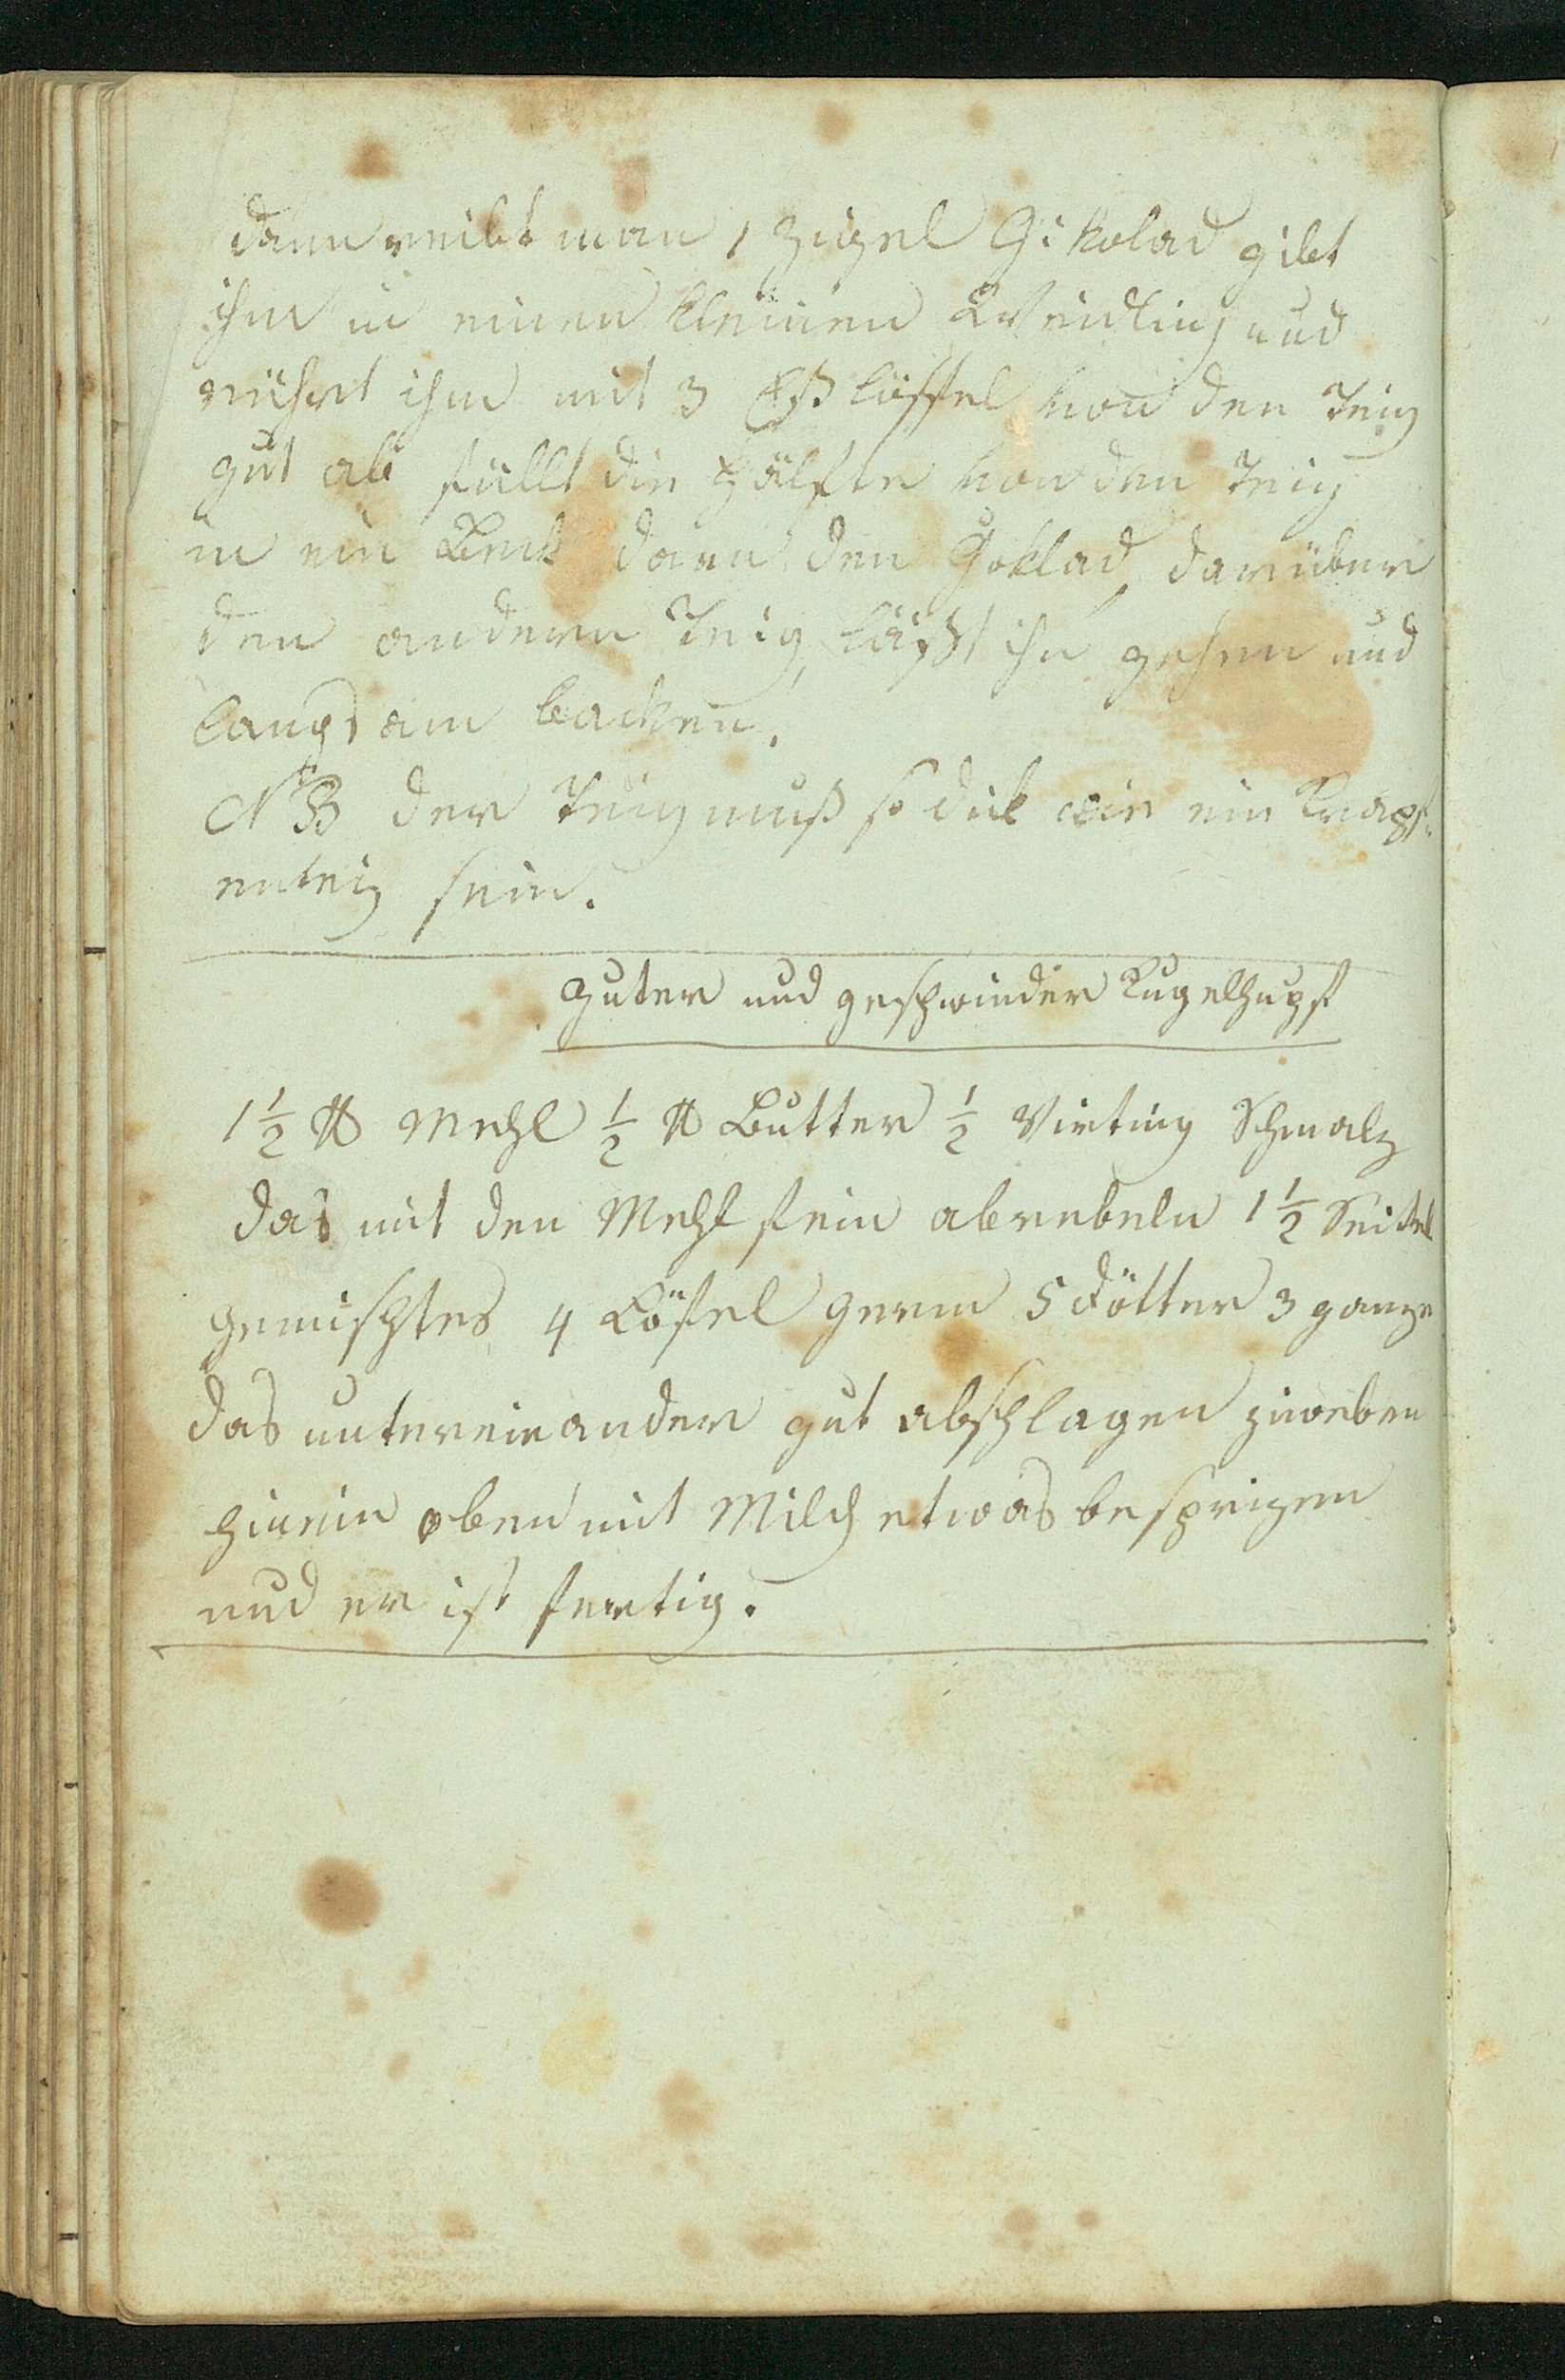 dann reibt man 1 Zigel Gikolad gibt
ihm in einen kleinen Weidling und
rührt ihm mit 3 Eßlöffel von den Teig
gut ab füllt die Hälfte von den Teig
in ein Beck dann den Goklad, darüber
den andern Teig, läßt ihn gehen und
langsam backen.
NB der Teig muß so dick wie ein Krapf-
enteig sein.
Guter und geschwinder Kugelhupf
1 1/2 ℔ Mehl 1/2 ℔ Butter 1/2 Virting Schmalz
das mit den Mehl fein abrebeln 1 1/2 Seitel
gemischtes 4 Löfel Germ 5 Dötter 3 ganze
das untereinander gut abschlagen ziweben
hinein oben mit Milch etwas besprizen
und er ist fertig.